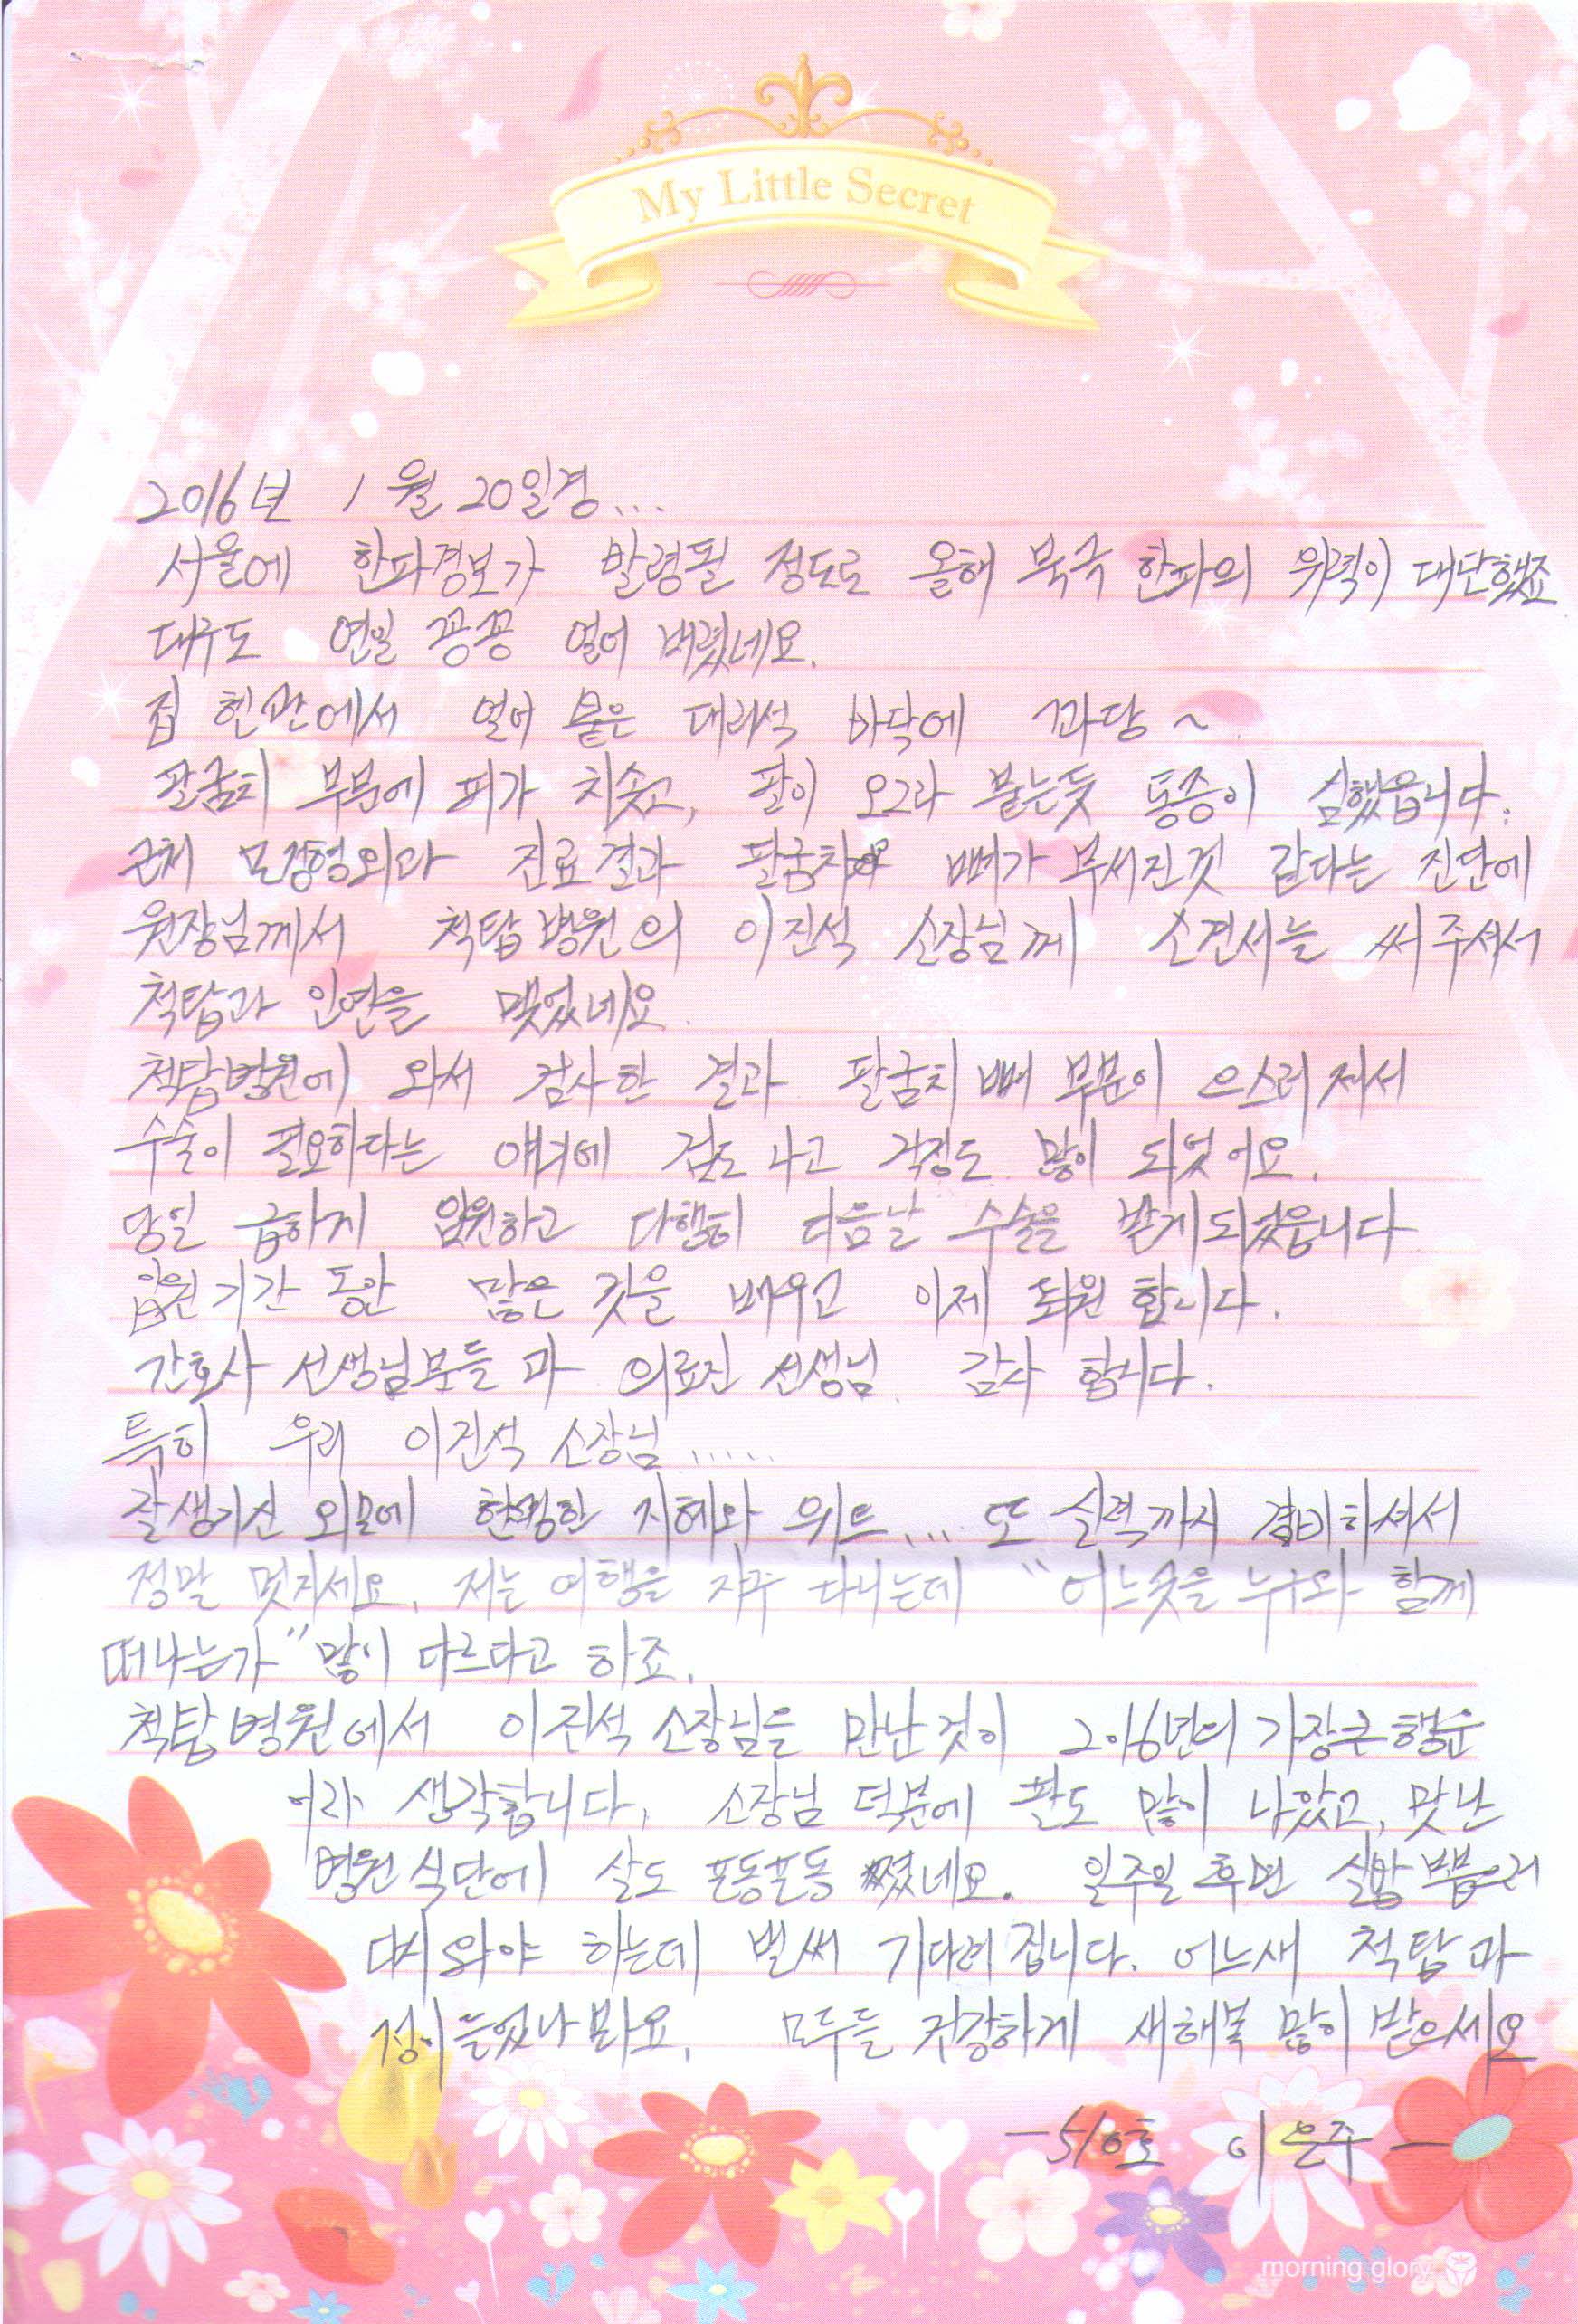 My Little Secret
2016년 1월 20일경...
서울에 한파경보가 발령될 정도로 올해 북극 한파의 위력이 대단했죠
대구도 연일 꽁꽁 얼어 버렸네요.
집 현관에서 얼어 붙은 대리석 바닥에 꽈당~
팔굼치 부분에 피가 치솟고, 팔이 오그라 붙는듯 통증이 심했읍니다.
근처 모정형외과 진료결과 팔굼치 뼈가 부서진것 같다는 진단에
원장님께서 척탑병원의 이진석 소장님께 소견서를 써주셔서
척탑과 인연을 맺었네요.
척탑병원에 와서 검사한 결과 팔굼치 뼈 부분이 으스러져서
수술이 필요하다는 얘기에 겁도 나고 걱정도 많이 되었어요.
당일 급하게 입원하고 다행히 다음날 수술을 받게되었읍니다
입원기간 동안 많은 것을 배우고 이제 퇴원 합니다.
간호사 선생님분들과 의료진 선생님 감사 합니다.
특히 우리 이진석 소장님.....
잘생기신 외모에 현명한 지혜와 위트... 또 실력까지 겸비하셔서
정말 멋지세요. 저는 여행을 자주 다니는데 "어느곳을 누구와 함께
떠나는가" 많이 다르다고 하죠.
척탑병원에서 이진석 소장님을 만난것이 2016년의 가장큰행운
이라 생각합니다. 소장님 덕분에 팔도 많이 나았고, 맛난
병원식단에 살도 포동포동 쪘네요. 일주일 후면 실밥 뽑으러
와야 하는데 벌써 기다려집니다. 어느새 척탑과
정이들었나봐요. 모두들 건강하게 새해복 많이 받으세요
-510호 이은주-
morning glory